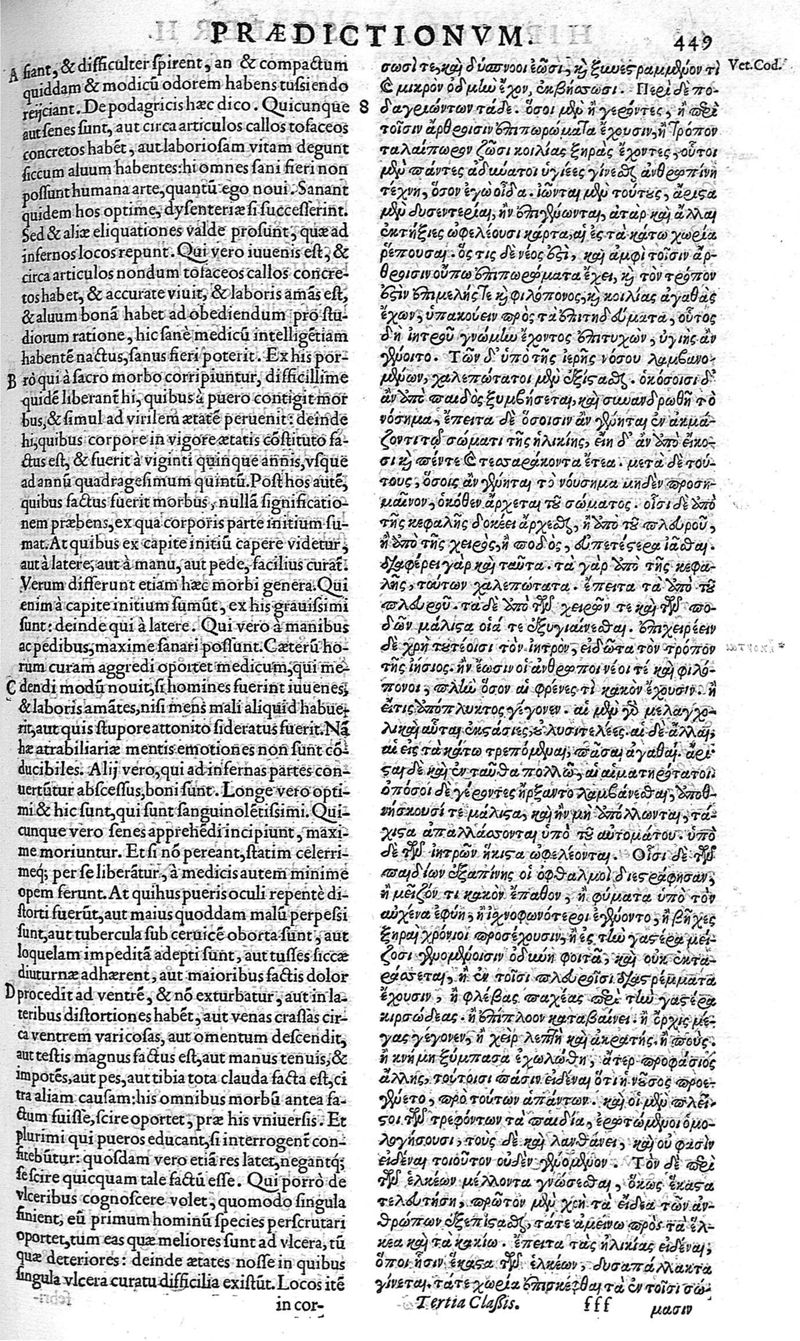 PRÆDICTIONVM.
449
A ſiant, & difficulter ſpirent, an & compactum
quiddam & modicũ odorem habens tuſsiendo
reijciant. De podagricis hæc dico. Quicunque 8
aut ſenes ſunt, aut circa articulos callos tofaceos
concretos habẽt, aut laborioſam vitam degunt
ſiccum aluum habentes: hi omnes ſani fieri non
poſſunt humana arte, quantũ ego noui. Sanant
quidem hos optime, dyſenteriæ ſi ſucceſſerint.
Sed & aliæ eliquationes valde proſunt, quæ ad
infernos locos repunt. Qui vero iuuenis eſt, &
circa articulos nondum tofaceos callos concre-
tos habet, & accurate viuit, & laboris amãs eſt,
& aluum bonã habet ad obediendum pro ſtu-
diorum ratione, hic ſanè medicũ intelligẽtiam
habentẽ nactus, ſanus fieri poterit. Ex his por-
B rò qui à ſacro morbo corripiuntur, difficillime
quidẽ liberant́ hi, quibus à puero contigit mor
bus, & ſimul ad virilem ætatẽ peruenit: deinde
hi, quibus corpore in vigore ætatis cõſtituto fa-
ctus eſt, & fuerit à viginti quinque annis, vſque
ad annũ quadrageſimum quintũ. Poſt hos autẽ,
quibus factus fuerit morbus, nullã ſignificatio-
nem præbens, ex qua corporis parte initium ſu-
mat. At quibus ex capite initiũ capere videtur,
aut à latere, aut à manu, aut pede, facilius curat́.
Verum differunt etiam hæc morbi genera. Qui
enim à capite initium ſumũt, ex his grauiſsimi
ſunt: deinde qui à latere. Qui vero à manibus
ac pedibus, maxime ſanari poſſunt. Cæterũ ho-
rum curam aggredi oportet medicum, qui me-
C dendi modũ nouit, ſi homines fuerint iuuenes,
& laboris amãtes, niſi mens mali aliquid habue-
rit, aut quis ſtupore attonito ſideratus fuerit. Nã
hæ atrabiliariæ mentis emotiones non ſunt cõ-
ducibiles. Alij vero, qui ad infernas partes con-
uertũtur abſceſſus, boni ſunt. Longe vero opti-
mi & hic ſunt, qui ſunt ſanguinolẽtiſsimi. Qui-
cunque vero ſenes apprehẽdi incipiunt, maxi-
me moriuntur. Et ſi nõ pereant, ſtatim celerri-
meq; per ſe liberãtur, à medicis autem minime
opem ferunt. At quibus pueris oculi repentè di-
ſtorti fuerũt, aut maius quoddam malũ perpeſsi
ſunt, aut tubercula ſub ceruice oborta ſunt, aut
loquelam impeditã adepti ſunt, aut tuſſes ſiccæ
diuturnæ adhærent, aut maioribus factis dolor
D procedit ad ventrẽ, & nõ exturbatur, aut in la-
teribus diſtortiones habẽt, aut venas craſſas cir-
ca ventrem varicoſas, aut omentum deſcendit,
aut teſtis magnus factus eſt, aut manus tenuis, &
impotẽs, aut pes, aut tibia tota clauda facta eſt, ci
tra aliam cauſam: his omnibus morbũ antea fa-
ctum fuiſſe, ſcire oportet, præ his vniuerſis. Et
plurimi qui pueros educant, ſi interrogent́ con-
fitebũtur: quoſdam vero etiã res latet, negantq́;
ſe ſcire quicquam tale factũ eſſe. Qui porrò de
vlceribus cognoſcere volet, quomodo ſingula
finient́, eũ primum hominũ ſpecies perſcrutari
oportet, tum eas quæ meliores ſunt ad vlcera, tũ
quæ deteriores: deinde ætates noſſe in quibus
ſingula vlcera curatu difficilia exiſtũt. Locos itẽ
in cor-
σωσί τε, καὶ δύσπνοοι ἔωσι, καὶ ξυνεστραμμένον τι Vet. Cod.
καὶ μικρὸν ὀδμὴν ἔχον, ἐκβήσσωσι. Περὶ δὲ πο-
δαγρώντων τάδε. ὅσοι μὲν ἢ γέροντες, ἢ περὶ
τοῖσιν ἄρθροισιν ἐπιπωρώματα ἔχουσιν, ἢ τρόπον
ταλαίπωρον ζῶσι κοιλίας ξηρὰς ἔχοντες, οὗτοι
μὲν πάντες ἀδύνατοι ὑγιέες γίνεσθαι ἀνθρωπίνῃ
τέχνῃ, ὅσον ἐγὼ οἶδα. ἰῶνται μὲν τούτους, ἄριστα
μὲν δυσεντερίαι, ἢν ἐπιγένωνται, ἀτὰρ καὶ ἄλλαι
ἐκτήξιες ὠφελέουσι κάρτα, αἱ ἐς τὰ κάτω χωρία
ῥέπουσαι. ὅστις δὲ νέος ἐστὶ, καὶ ἀμφὶ τοῖσιν ἄρ-
θροισιν οὔπω ἐπιπωρώματα ἔχει, καὶ τὸν τρόπον
ἐστὶν ἐπιμελής τε καὶ φιλόπονος, καὶ κοιλίας ἀγαθὰς
ἔχων, ὑπακούειν πρὸς τὰ ἐπιτηδεύματα, οὗτος
δὴ ἰητροῦ γνώμην ἔχοντος ἐπιτυχὼν, ὑγιὴς ἂν
γένοιτο. Τῶν δ' ὑπὸ τῆς ἱερῆς νόσου λαμβανο-
μένων, χαλεπώτατοι μὲν ἐξίστασθαι. ὁκόσοισι δ'
ἂν ἀπὸ παιδὸς ξυμβήσεται, καὶ συνανδρωθῇ τὸ
νόσημα, ἔπειτα δὲ ὅσοισιν ἂν γένηται ἐν ἀκμά-
ζοντι τῷ σώματι τῆς ἡλικίης, εἴη δ' ἂν ἀπὸ εἴκο-
σι καὶ πέντε καὶ τεσσαράκοντα ἔτεα. μετὰ δὲ τού-
τους, ὅσοις ἂν γένηται τὸ νούσημα μηδὲν προση-
μαῖνον, ὁκόθεν ἄρχεται τοῦ σώματος. οἷσι δὲ ἀπὸ
τῆς κεφαλῆς δοκέει ἄρχεσθαι, ἢ ἀπὸ τοῦ πλευροῦ,
ἢ ἀπὸ τῆς χειρὸς, ἢ ποδὸς, εὐπετέστερα ἰᾶσθαι.
διαφέρει γὰρ καὶ ταῦτα. τὰ γὰρ ἀπὸ τῆς κεφα-
λῆς, τούτων χαλεπώτατα. ἔπειτα τὰ ἀπὸ τοῦ
πλευροῦ. τὰ δὲ ἀπὸ τῶν χειρῶν τε καὶ τῶν πο-
δῶν μάλιστα οἷά τε ἐξυγιαίνεσθαι. ἐπιχειρέειν
δὲ χρὴ τουτέοισι τὸν ἰητρὸν, εἰδῶτα τὸν τρόπον
τῆς ἰήσιος. ἢν ἔωσιν οἱ ἄνθρωποι νέοι τε καὶ φιλό-
πονοι, πλὴν ὅσον αἱ φρένες τι κακὸν ἔχουσιν. ἢ
εἴ τις ἀπόπληκτος γέγονεν. αἱ μὲν γὰρ μελαγχο-
λικαὶ αὗται ἐκστάσιες, οὐ λυσιτελέες. αἱ δὲ ἄλλαι,
αἱ εἰς τὰ κάτω τρεπόμεναι, πᾶσαι ἀγαθαί. ἄρι-
σται δὲ καὶ ἐνταῦθα πολλῷ, αἱ αἱματηρόταται
ὁπόσοι δὲ γέροντες ἤρξαντο λαμβάνεσθαι, ἀποθ-
νήσκουσί τε μάλιστα, καὶ ἢν μὴ ἀπόλλωνται, τά-
χιστα ἀπαλλάσσονται ὑπὸ τοῦ αὐτομάτου. ὑπὸ
δὲ τῶν ἰητρῶν ἥκιστα ὠφελέονται. Οἷσι δὲ τῶν
παιδίων ἐξαπίνης οἱ ὀφθαλμοὶ διεστράφησαν,
ἢ μεῖζόν τι κακὸν ἔπαθον, ἢ φύματα ὑπὸ τὸν
αὐχένα ἐφύη, ἢ ἰσχνοφωνότεροι ἐγένοντο, ἢ βῆχες
ξηραὶ χρόνιοι προσέχουσιν, ἢ ἐς τὴν γαστέρα μεί-
ζοσι γενομένοισιν ὀδύνη φοιτᾷ, καὶ οὐκ ἐκτα-
ράσσεται, ἢ ἐν τοῖσι πλευροῖσι διαστρέμματα
ἔχουσιν, ἢ φλέβας παχέας περὶ τὴν γαστέρα
κιρσώδεας. ἢ ἐπίπλοον καταβαίνει. ἢ ὄρχις μέ-
γας γέγονεν, ἢ χεὶρ λεπτὴ καὶ ἀκρατής. ἢ πούς.
ἢ κνήμη ξύμπασα ἐχωλώθη, ἄτερ προφάσιος
ἄλλης, τούτοισι πᾶσιν εἰδέναι ὅτι ἡ νοῦσος προε-
γένετο, πρὸ τούτων ἁπάντων. καὶ οἱ μὲν πλεῖ-
στοι τῶν τρεφόντων τὰ παιδία, ἐρωτώμενοι ὁμο-
λογήσουσι, τοὺς δὲ καὶ λανθάνει, καὶ οὔ φασιν
εἰδέναι τοιοῦτον οὐδὲν γενόμενον. Τὸν δὲ περὶ
τῶν ἑλκέων μέλλοντα γνώσεσθαι, ὅκως ἕκαστα
τελευτήσῃ, πρῶτον μὲν χρὴ τὰ εἴδεα τῶν ἀν-
θρώπων ἐξεπίστασθαι, τά τε ἀμείνω πρὸς τὰ ἕλ-
κεα καὶ τὰ κακίω. ἔπειτα τὰς ἡλικίας εἰδέναι,
ὁποίησιν ἕκαστα τῶν ἑλκέων, δυσαπάλλακτα
γίνεται. τά τε χωρία ἐπισκέφθαι τὰ ἐν τοῖσι σώ-
Tertia Claſſis. fff μασιν